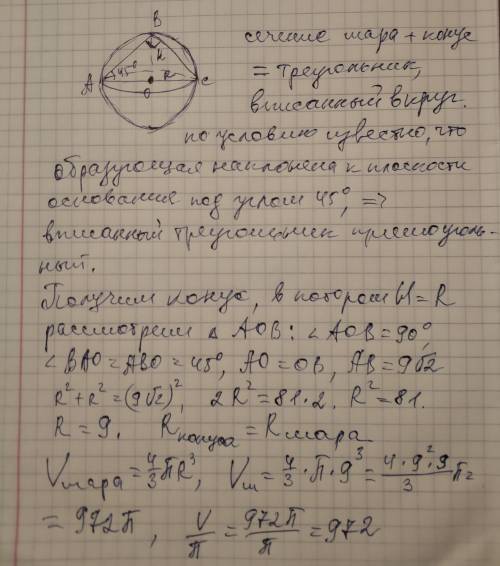 B
H
45°
R
A
C
O
сечение шара + конус
= треугольник,
вписанный в круг.
по условию известно, что
образующая наклонена к плоскости
основания под углом 45°, =>
вписанный треугольник прямоуголь-
ный.
Получим конус, в котором H = R
рассмотрим △ AOB: ∠AOB = 90°,
∠BAO = ABO = 45°, AO = OB, AB = 9√2
R² + R² = (9√2)², 2R² = 81·2. R² = 81.
R = 9. Rконуса = Rшара
Vшара = 4/3 πR³, Vш = 4/3 · π · 9³ = 4·9²·9/3 π =
= 972π, V/π = 972π/π = 972